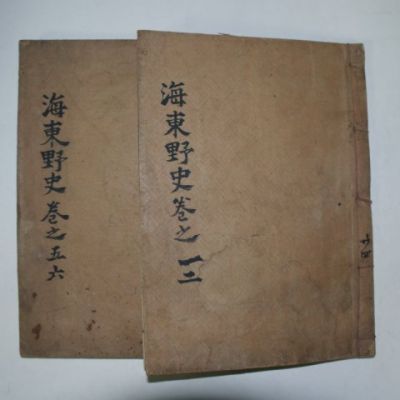 海東野史 卷之五六
海東野史卷之一二